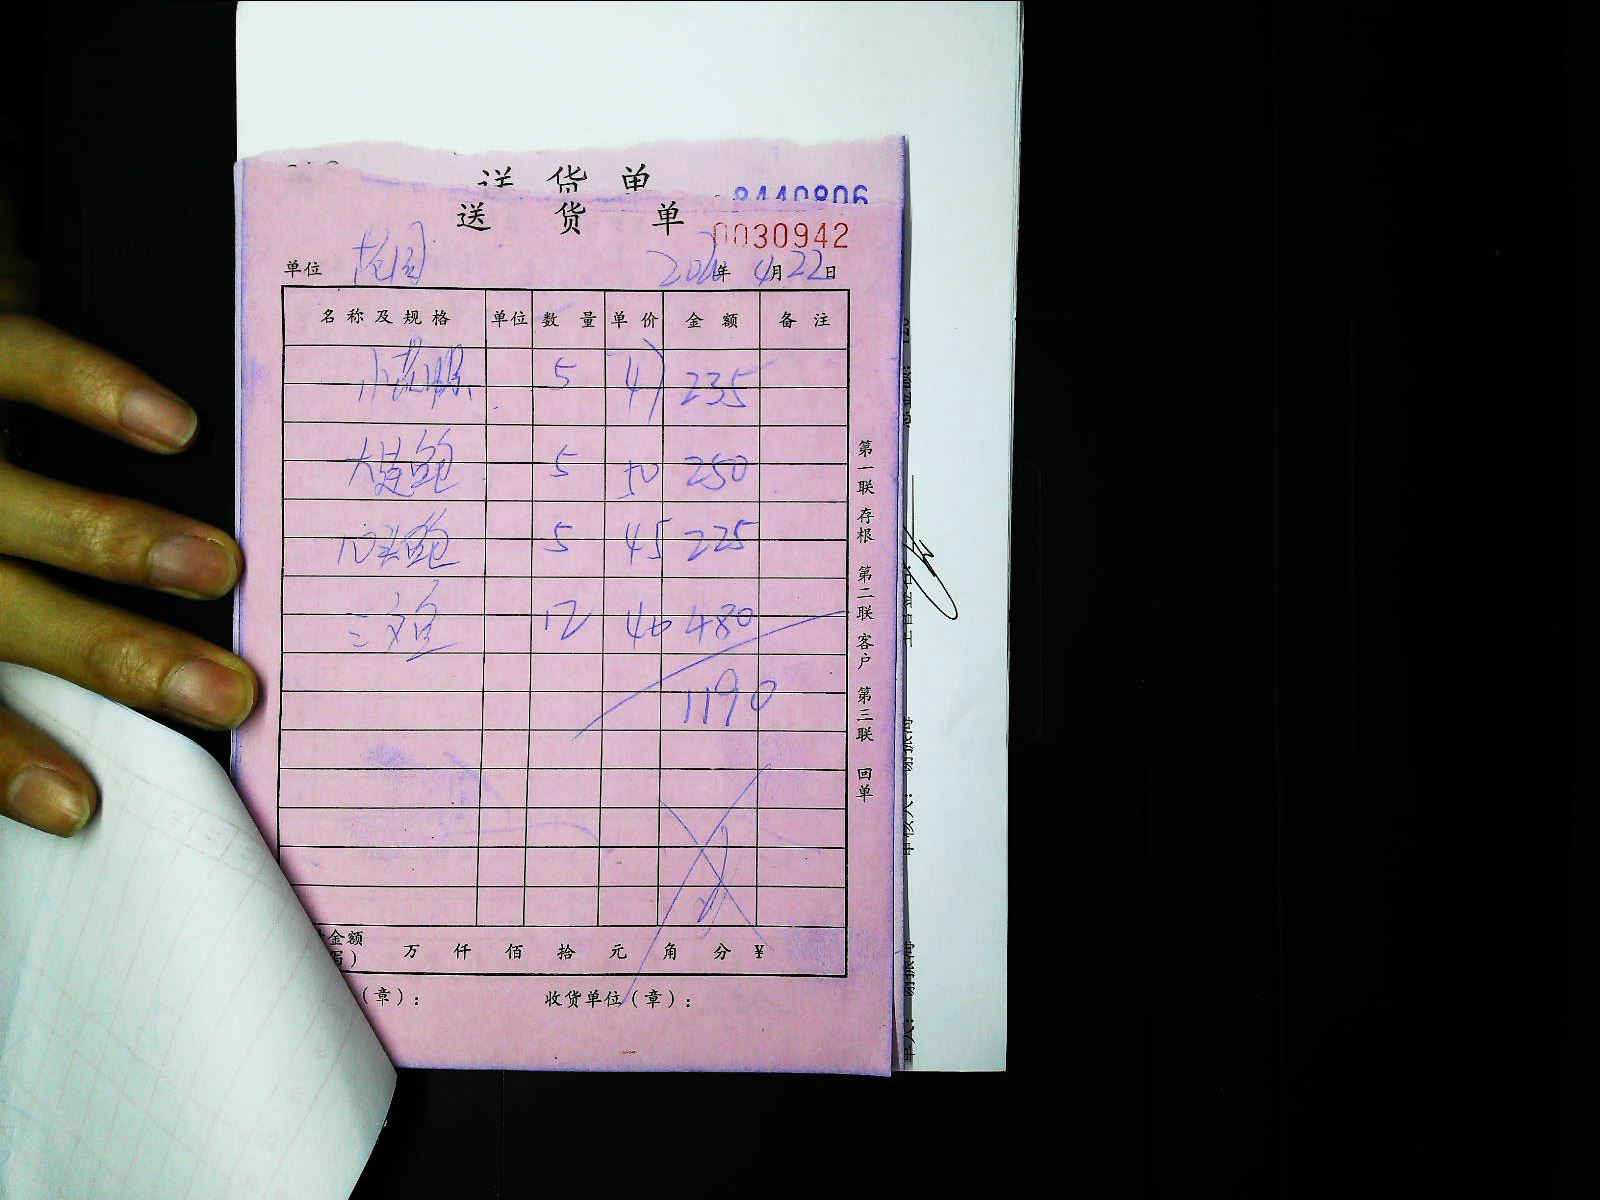 送货单
8440806
送货单
0030942
单位 花园 202 年 4月22日
名称及规格 单位 数量 单价 金额 备注
小 5 47 235
大连鲍 5 50 250
鲍 5 45 225
三文鱼 12 40 480
1190
金额 万 仟 佰 拾 元 角 分 ¥
(章): 收货单位(章):
第一联 存根 第二联 客户 第三联 回单